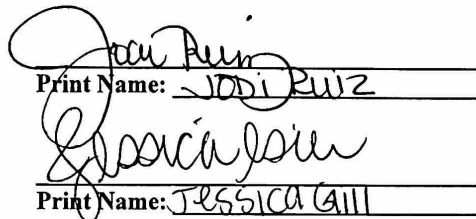 Jodi Ruiz
Print Name: JODi RUiZ
Jessica
Print Name: JessicA GAill